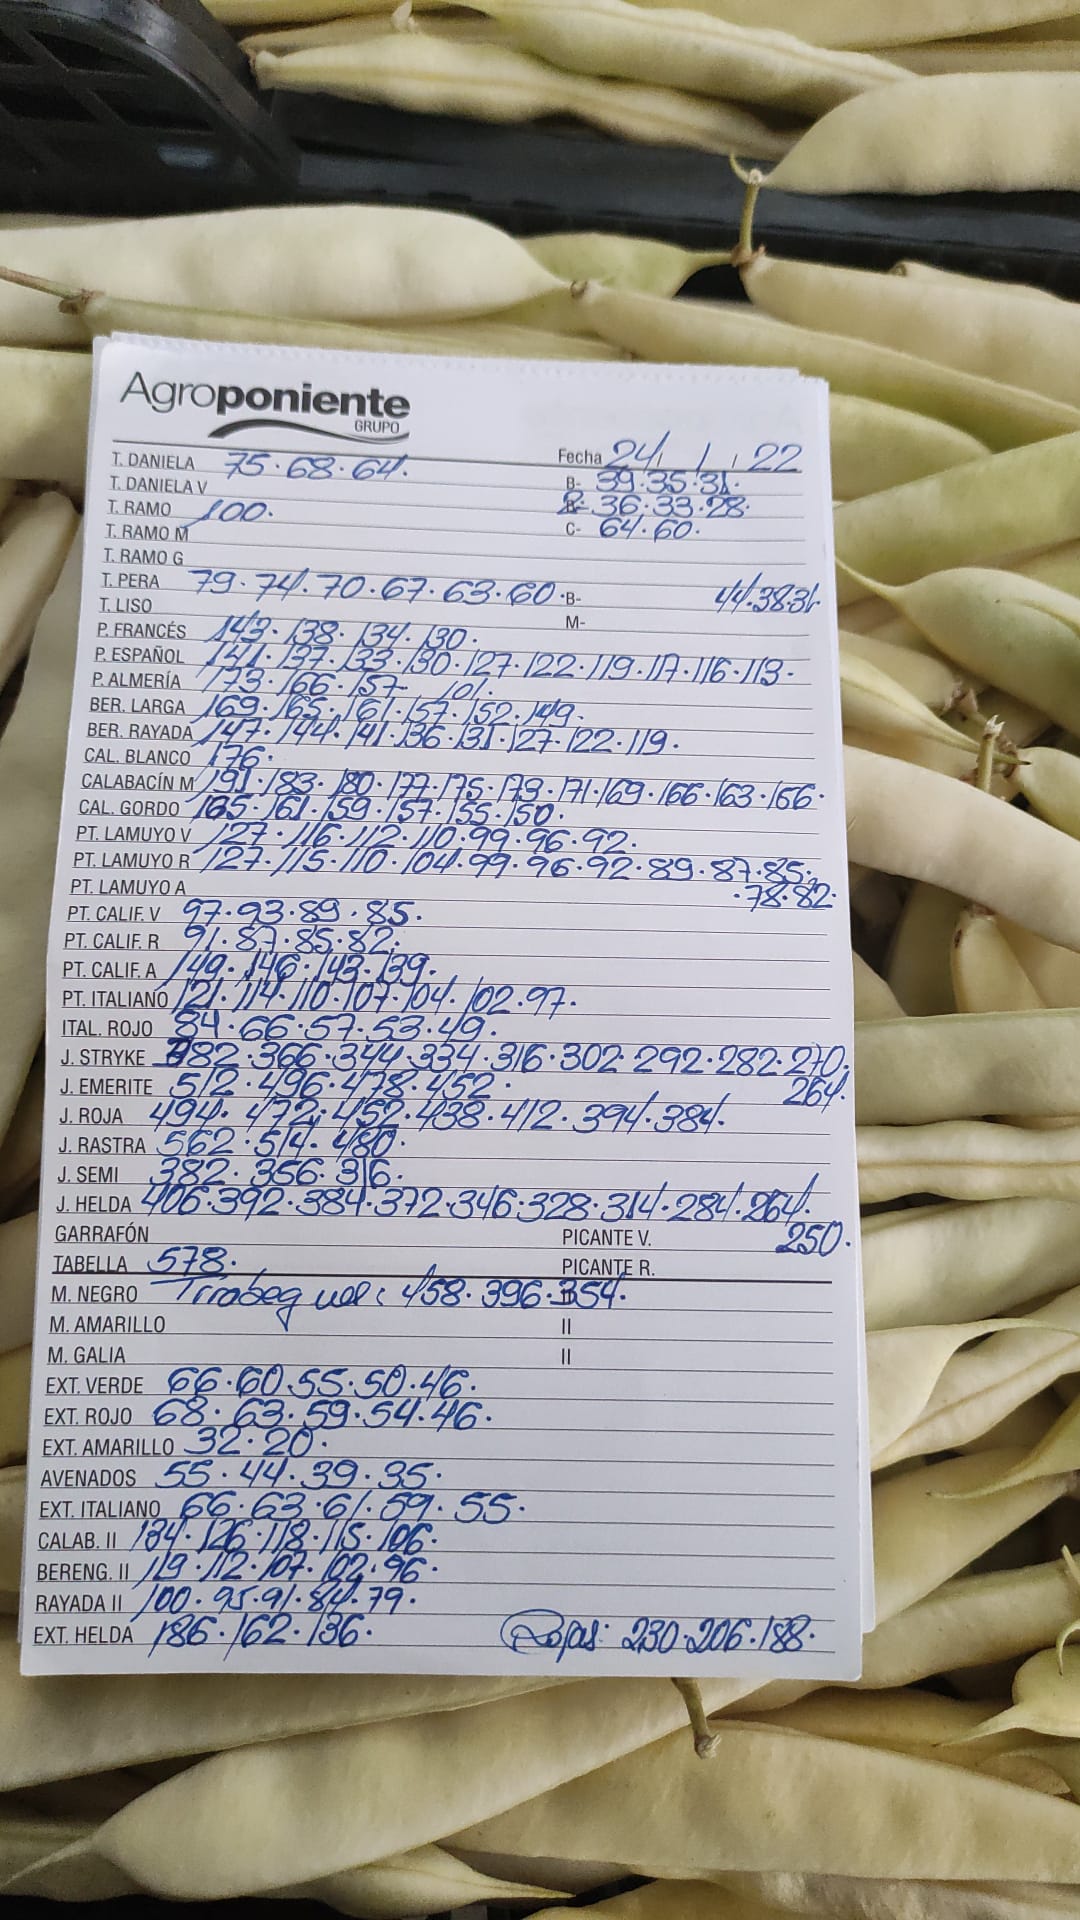 Agroponiente
GRUPO
Fecha 24/ 1 / 22
T. DANIELA 75·68·64·
B- 39·35·31·
T. DANIELA V
R- 36·33·28·
T. RAMO 100·
C- 64·60·
T. RAMO M
T. RAMO G
T. PERA 79·74·70·67·63·60· B- 44·38·31·
T. LISO M-
P. FRANCÉS 143·138·134·130·
P. ESPAÑOL 141·137·133·130·127·122·119·117·116·113·
P. ALMERÍA 173·166·157 101·
BER. LARGA 169·165·161·157·152·149·
BER. RAYADA 147·144·141·136·131·127·122·119·
CAL. BLANCO 176·
CALABACÍN M 191·183·180·177·175·173·171·169·166·163·156·
CAL. GORDO 165·161·159·157·155·150·
PT. LAMUYO V 127·116·112·110·99·96·92·
PT. LAMUYO R 127·115·110·104·99·96·92·89·87·85·
·78·82·
PT. LAMUYO A
PT. CALIF. V 97·93·89·85·
PT. CALIF. R 91·87·85·82·
PT. CALIF. A 149·146·143·139·
PT. ITALIANO 121·114·110·107·104·102·97·
ITAL. ROJO 84·66·57·53·49·
J. STRYKE 382·366·344·334·316·302·292·282·270·
264·
J. EMERITE 512·496·478·452·
J. ROJA 494·472·452·438·412·394·384·
J. RASTRA 562·514·480·
J. SEMI 382·356·316·
J. HELDA 406·392·384·372·346·328·314·284·264·
250·
GARRAFÓN PICANTE V.
TABELLA 578· PICANTE R.
M. NEGRO Tirabeques: 458·396·354·
M. AMARILLO II
M. GALIA II
EXT. VERDE 66·60·55·50·46·
EXT. ROJO 68·63·59·54·46·
EXT. AMARILLO 32·20·
AVENADOS 55·44·39·35·
EXT. ITALIANO 66·63·61·59·55·
CALAB. II 134·126·118·115·106·
BERENG. II 119·112·107·102·96·
RAYADA II 100·95·91·84·79·
EXT. HELDA 186·162·136· Rojas: 230·206·188·